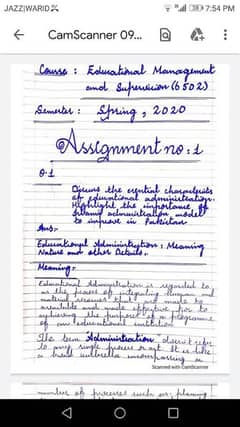 JAZZ|WARID
7:54 PM
CamScanner 09...
Course : Educational Management
and Supervision (6502)
Semester : Spring, 2020
Assignment no : 1
Q.1
Discuss the essential characteristics
of educational administration.
Highlight the importance of
Islamic administration model
to improve in Pakistan
Ans:-
Educational Administration : Meaning
Nature and other Details.
Meaning:-
Educational Administration is regarded to
as the process of integrating human and
material resources that are made to
available and made effective for to
achieving the purposes of a programme
of an educational institution
The term "Administration" doesn't refer
to any single process or act. It is like
a broad umbrella encompassing a
Scanned with CamScanner
number of processes such as: planning